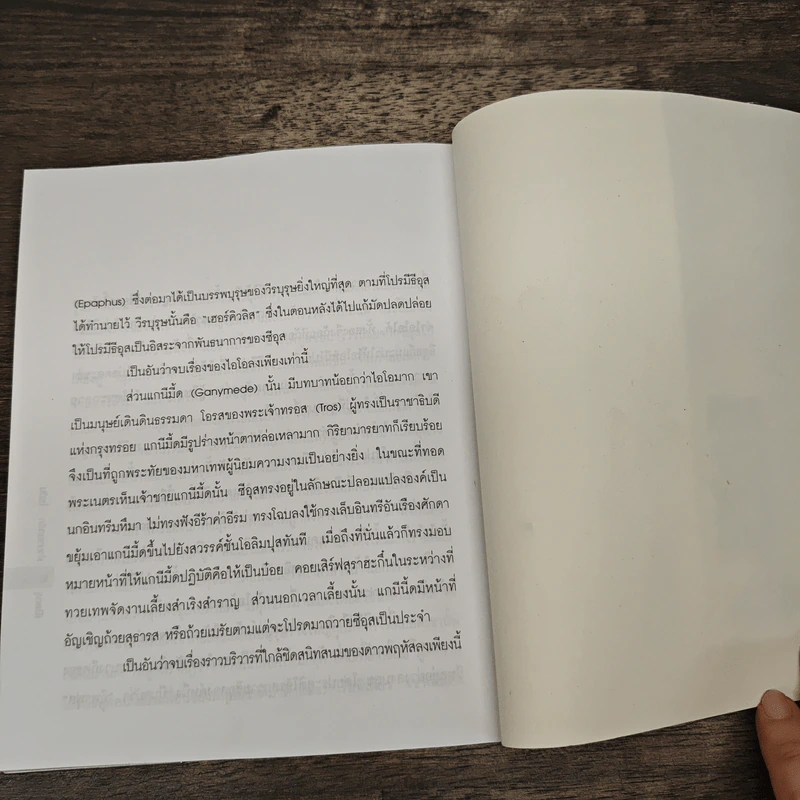 (Epaphus) ซึ่งต่อมาได้เป็นบรรพบุรุษของวีรบุรุษยิ่งใหญ่ที่สุด ตามที่โปรมีธีอุส
ได้ทำนายไว้ วีรบุรุษนั้นคือ "เฮอร์คิวลิส" ซึ่งในตอนหลังได้ไปแก้มัดปลดปล่อย
ให้โปรมีธีอุสเป็นอิสระจากพันธนาการของซีอุส
เป็นอันว่าจบเรื่องของไอโอลงเพียงเท่านี้
ส่วนแกนีมี้ด (Ganymede) นั้น มีบทบาทน้อยกว่าไอโอมาก เขา
เป็นมนุษย์เดินดินธรรมดา โอรสของพระเจ้าทรอส (Tros) ผู้ทรงเป็นราชาธิบดี
แห่งกรุงทรอย แกนีมี้ดมีรูปร่างหน้าตาหล่อเหลามาก กิริยามารยาทก็เรียบร้อย
จึงเป็นที่ถูกพระทัยของมหาเทพผู้นิยมความงามเป็นอย่างยิ่ง ในขณะที่ทอด
พระเนตรเห็นเจ้าชายแกนีมี้ดนั้น ซีอุสทรงอยู่ในลักษณะปลอมแปลงองค์เป็น
นกอินทรีมหึมา ไม่ทรงฟังอีร้าค่าอีรม ทรงโฉบลงใช้กรงเล็บอินทรีอันเรืองศักดา
ขยุ้มเอาแกนีมี้ดขึ้นไปยังสวรรค์ชั้นโอลิมปุสทันที เมื่อถึงที่นั่นแล้วก็ทรงมอบ
หมายหน้าที่ให้แกนีมี้ดปฏิบัติคือให้เป็นบ๋อย คอยเสิร์ฟสุราฮะกึ๋นในระหว่างที่
ทวยเทพจัดงานเลี้ยงสำเริงสำราญ ส่วนนอกเวลาเลี้ยงนั้น แกมีนี้ดมีหน้าที่
อัญเชิญถ้วยสุธารส หรือถ้วยเมรัยตามแต่จะโปรดมาถวายซีอุสเป็นประจำ
เป็นอันว่าจบเรื่องราวบริวารที่ใกล้ชิดสนิทสนมของดาวพฤหัสลงเพียงนี้